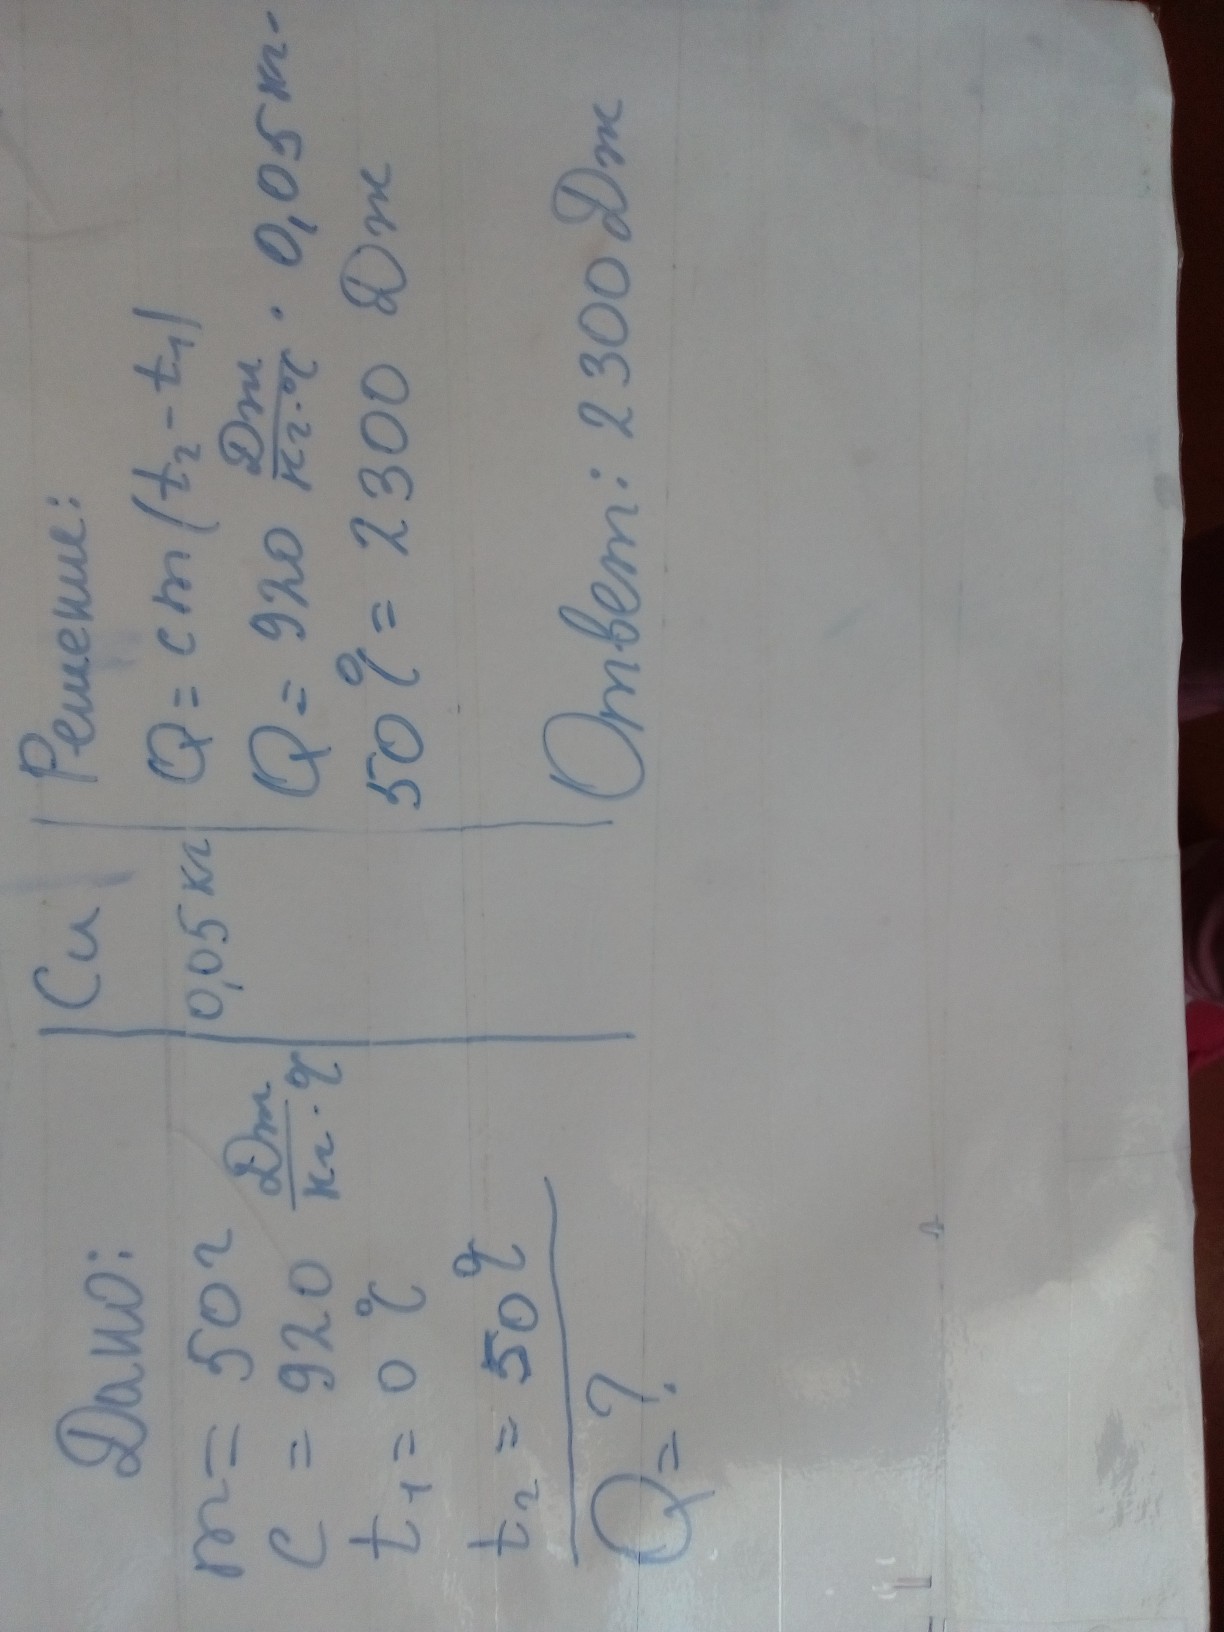 Дано:
m = 50 г
c = 920 Дж/кг·°C
t₁ = 0 °C
t₂ = 50 °C
Q = ?
Си
0,05 кг
Решение:
Q = cm(t₂ - t₁)
Q = 920 Дж/кг·°C · 0,05 кг·
50 °C = 2300 Дж
Ответ: 2300 Дж